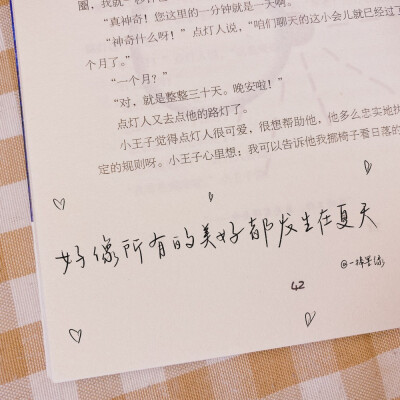 “真神奇！您这里的一分钟就是一天啊。
“神奇什么呀！”点灯人说，“咱们聊天的这小会儿就已经过了
个月了。”
“一个月？”
“对，就是整整三十天。晚安啦！”
点灯人又去点他的路灯了。
小王子觉得点灯人很可爱，很想帮助他，他多么忠实地执
定的规则呀。小王子心里想：我可以告诉他我挪椅子看日落的
好像所有的美好都发生在夏天
42